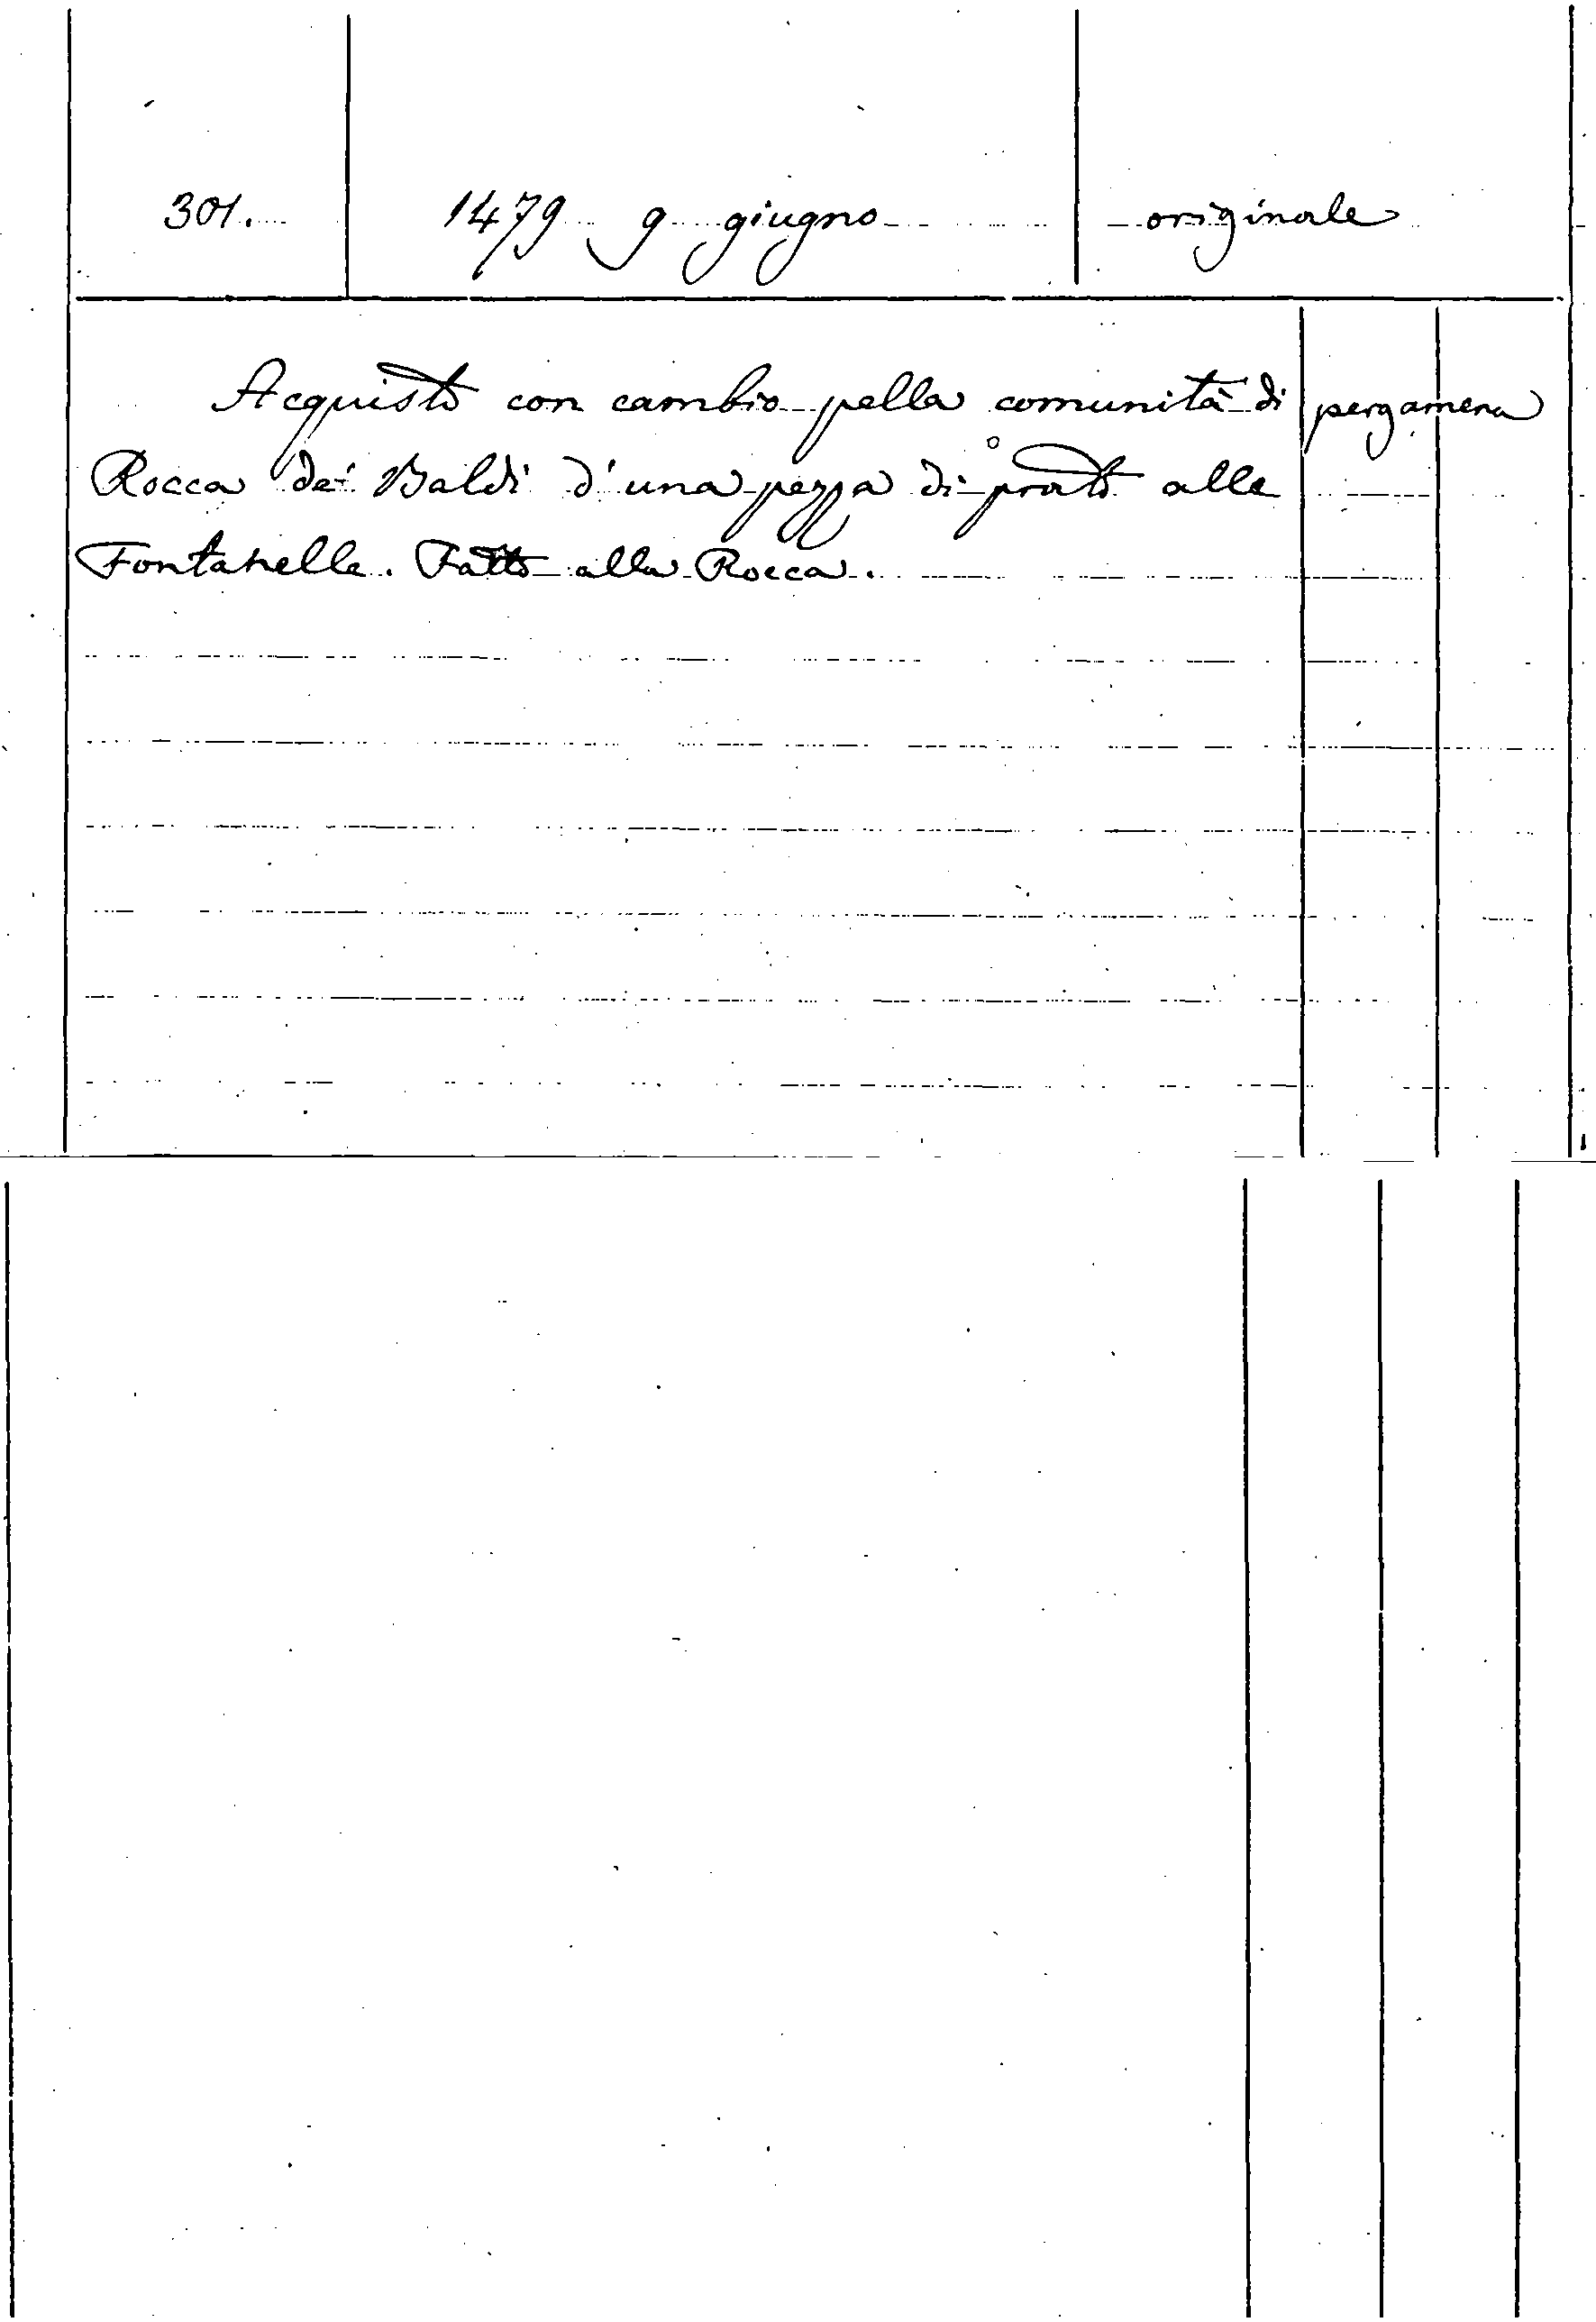 301. 1479 9 giugno originale
Acquisto con cambio pella comunità di pergamena
Rocca de' Baldi d'una pezza di prato alle
Fontanelle. Fatto alla Rocca.